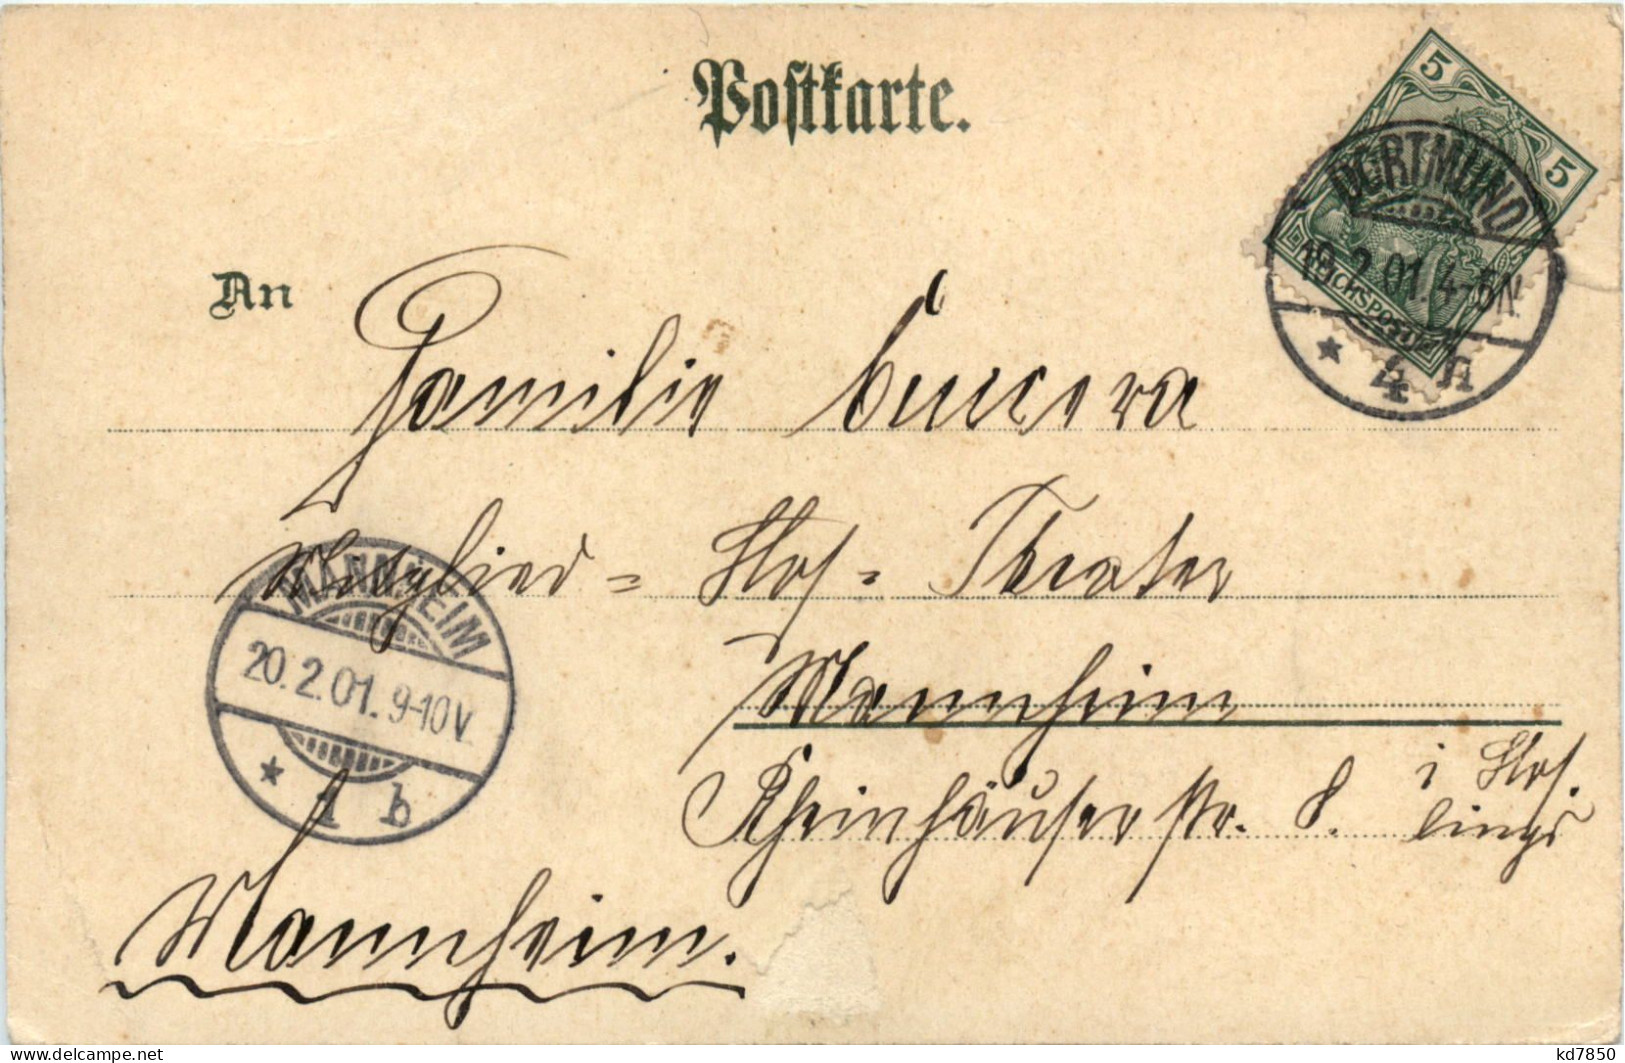 Postkarte.
5 5
REICHSPOST
DORTMUND
19.2.01.4-5N.
* 4 n
An
Familie
Mitglied = Hof = Theater
MANNHEIM
20.2.01.9-10V.
* 1 b
Mannheim
Rheinhäuserstr. 8. i Hof.
links
Mannheim.
www.delcampe.net
kd7850